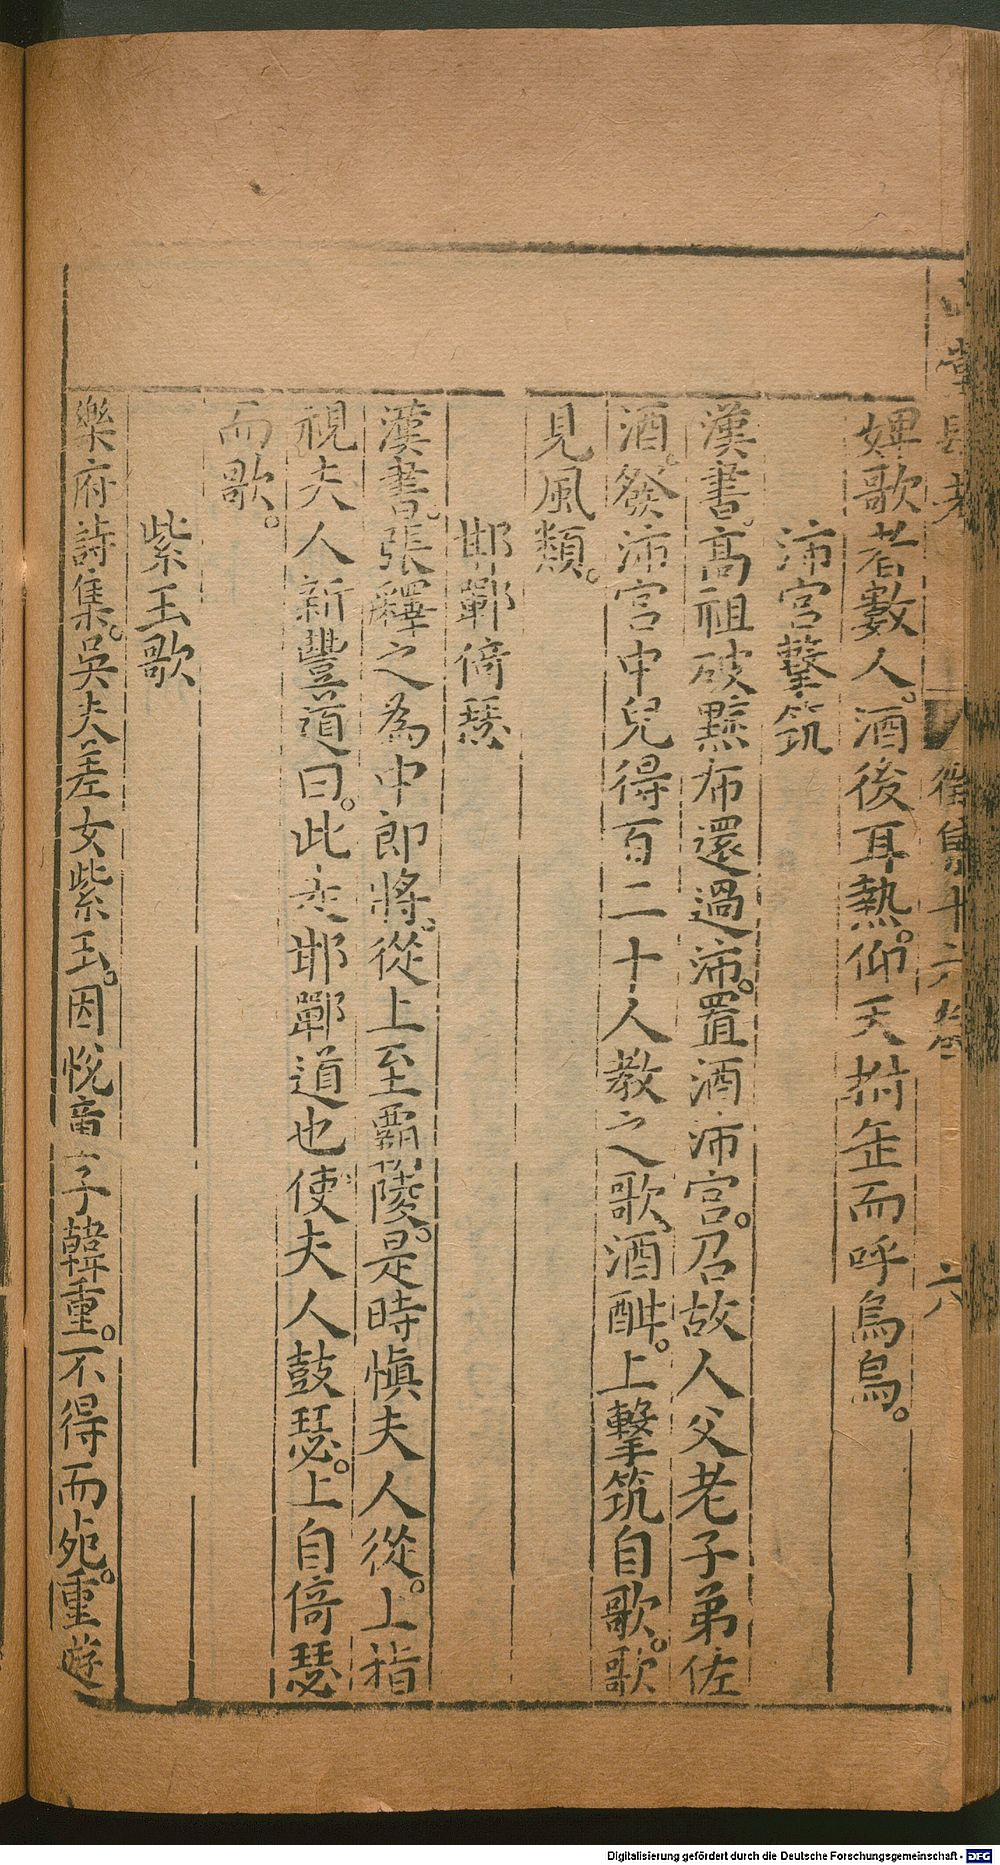 山堂肆考 徵集十六卷 六
婢歌者數人。酒後耳熱。仰天拊缶而呼烏烏。
沛宮擊筑
漢書。高祖破黥布還過沛。置酒沛宮。召故人父老子弟佐
酒。發沛宮中兒得百二十人教之歌、酒酣。上擊筑自歌。歌
見風類。
邯鄲倚瑟
漢書。張釋之為中郎將。從上至霸陵。是時慎夫人從。上指
視夫人新豐道曰。此走邯鄲道也使夫人鼓瑟。上自倚瑟
而歌。
紫玉歌
樂府詩集。吳夫差女紫玉。因悅童子韓重。不得而死。重遊
Digitalisierung gefördert durch die Deutsche Forschungsgemeinschaft - DFG